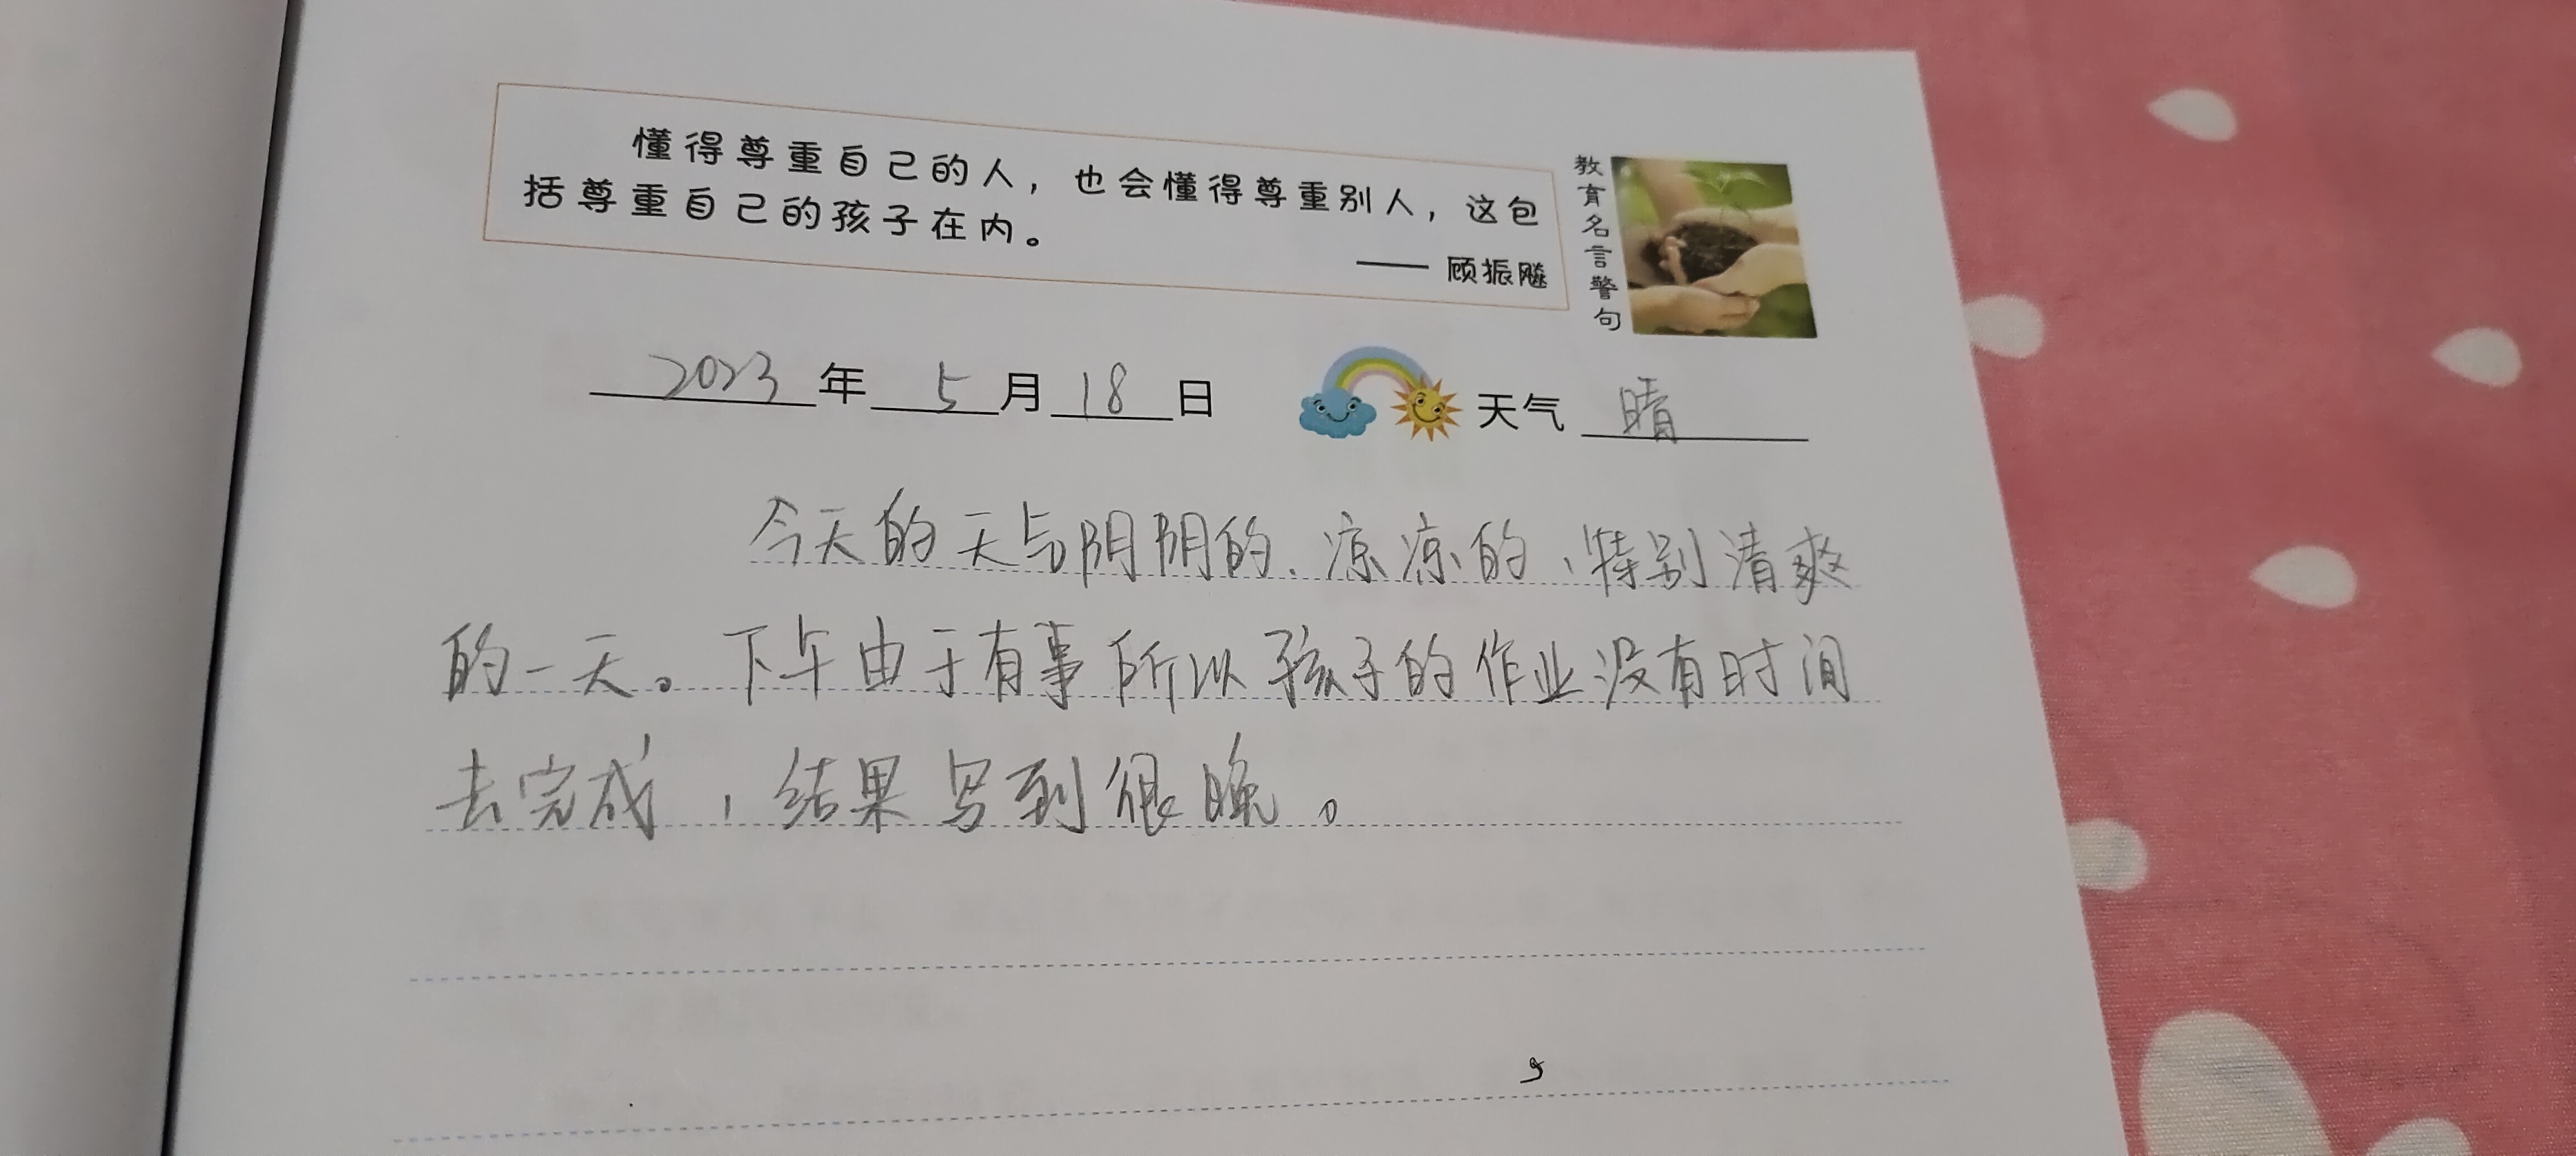 懂得尊重自己的人，也会懂得尊重别人，这包
括尊重自己的孩子在内。
—— 顾振飚
教育名言警句
2023年 5月18日 天气 晴
今天的天气阴阴的、凉凉的，特别清爽
的一天。下午由于有事所以孩子的作业没有时间
去完成，结果写到很晚。